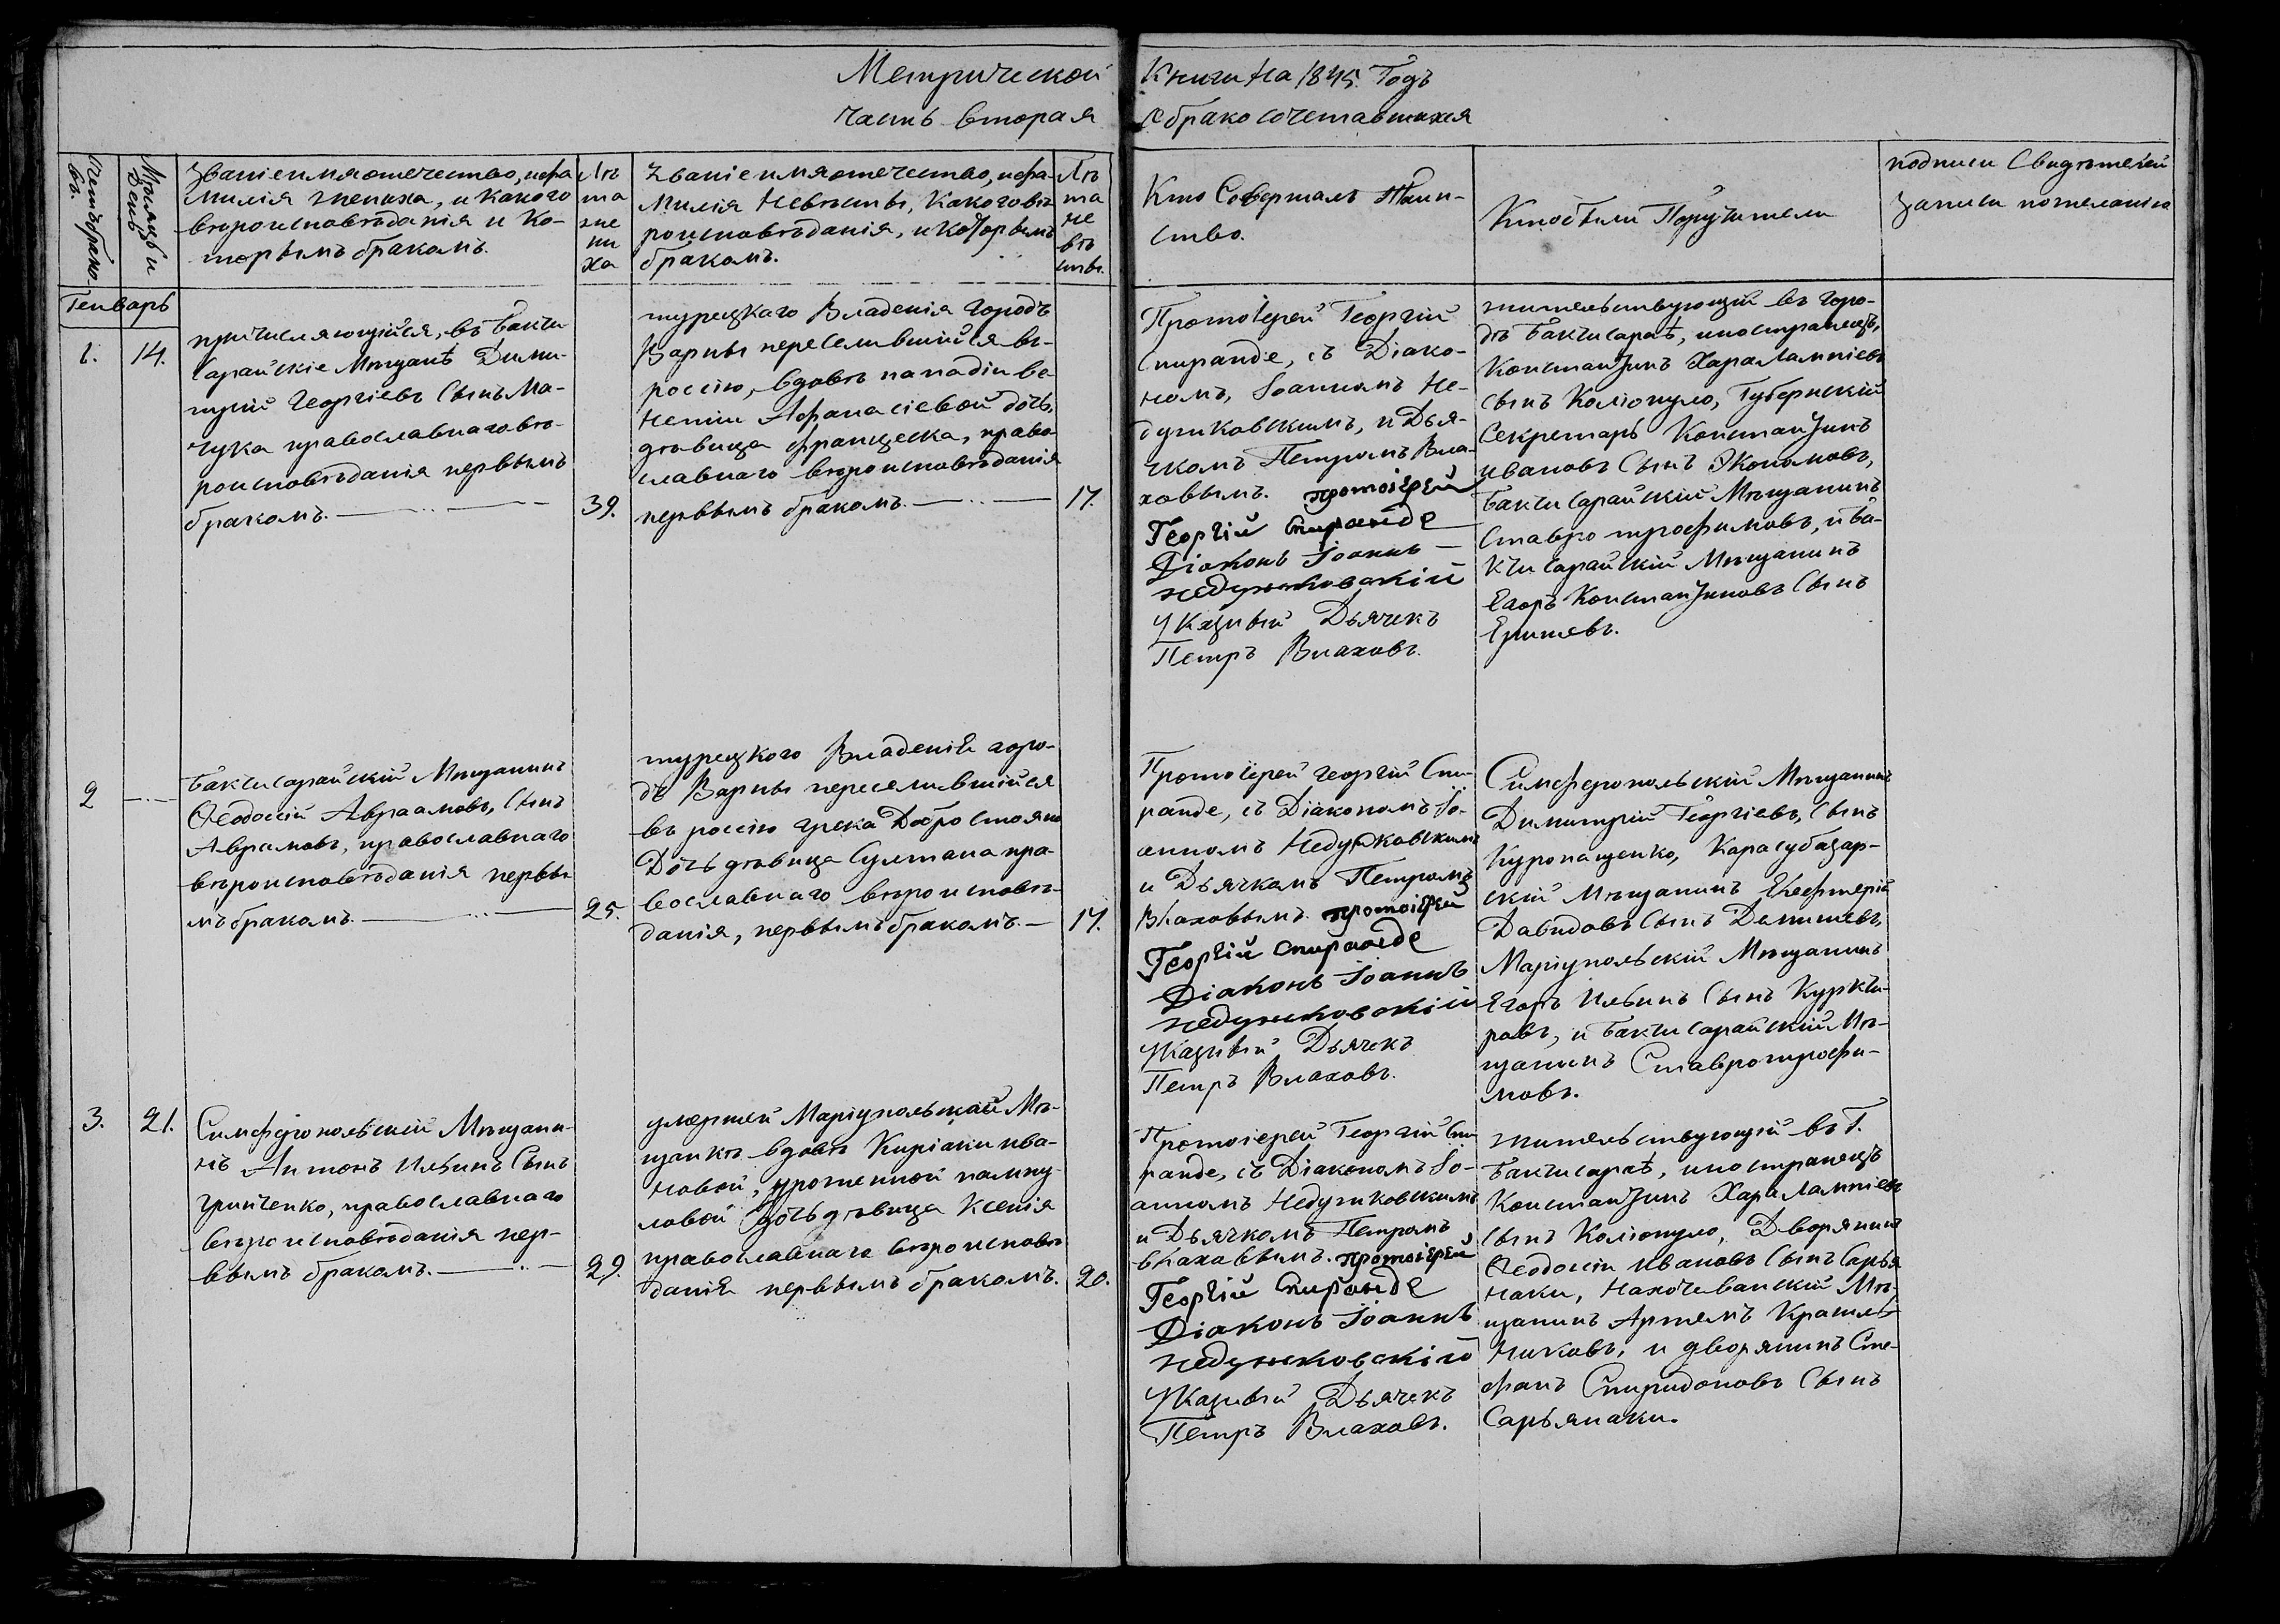 Метрической Книги на 1845. Годъ
часть вторая о бракосочетавшихся
Счетъ браковъ.
Мѣсяцъ и День
Званіе имя отечество, и фа
милія жениха, и какого
вѣроисповѣданія и Ко-
торымъ бракомъ.
Лѣ
та
же
ни
ха
Званіе имя отечество, и фа-
милія Невѣсты, Какого вѣ
роисповѣданія, и Которымъ
бракомъ.
Лѣ
та
не
вѣ
сты.
Кто Совершалъ Таин-
ство.
Кто были Поручители
подписи Свидѣтелей
записи по желанію
Генварь
1.
14.
причисляющійся, въ Бакчи
сарайскіе Мѣщанѣ Дими-
трій Георгіевъ Сынъ Ма-
чука православнаго вѣ-
роисповѣданія первымъ
бракомъ.
39.
турецкаго Владенія Городъ
Варны переселившійся въ
россію, вдовѣ попадіи Ве
нетіи Афанасіевой дочь,
дѣвица Франческа, право-
славнаго вѣроисповѣданія
первымъ бракомъ.
17.
Протоіерей Георгій
Спиранде, съ Діако-
номъ, Іоанномъ Не-
дужковскимъ, и Дья-
чкомъ Петромъ Вла-
ховымъ. протоіерей
Георгій Спиранде
Діаконъ Іоаннъ
недужковскій
Указный Дьячекъ
Петръ Влаховъ.
жительствующій въ горо-
дѣ Бакчисараѣ, иностранецъ,
Константинъ Харалампіевъ
сынъ Коліопуло, Губернскій
Секретарь Константинъ
Ивановъ Сынъ Экономовъ,
Бакчисарайскій Мѣщанинъ
Ставро трофимовъ, и Ба-
кчисарайскій Мѣщанинъ
Егоръ Константиновъ Сынъ
Еришевъ.
2
Бакчисарайскій Мѣщанинъ
Ѳеодосій Авраамовъ, Сынъ
Аврамовъ, православнаго
вѣроисповѣданія первы
мъ бракомъ.
25.
турецкого Владенія горо-
дъ Варны переселившійся
въ россію грека Добро Стояно
Дочь дѣвица Султана пра-
вославнаго вѣроисповѣ-
данія, первымъ бракомъ.
17.
Протоіерей Георгій Спи-
ранде, съ Діакономъ Іо-
анномъ Недужковскимъ
и Дьячкомъ Петромъ
Влаховымъ. протоіерей
Георгій Спиранде
Діаконъ Іоаннъ
недужковскій
Указный Дьячекъ
Петръ Влаховъ.
Симферопольскій Мѣщанинъ
Димитрій Георгіевъ, Сынъ
Куропаценко, Карасубазар-
скій Мѣщанинъ Елефтерій
Давидовъ Сынъ Демишевъ,
Маріупольскій Мѣщанинъ
Егоръ Ильинъ Сынъ Куркчи-
ровъ, и Бакчисарайскій Мѣ-
щанинъ Ставро трофи-
мовъ.
3.
21.
Симферопольскій Мѣщани-
нъ Антонъ Ильинъ Сынъ
Гринченко, православнаго
вѣроисповѣданія пер-
вымъ бракомъ.
29.
умершей Маріупольской Мѣ-
щанкѣ вдовѣ Киріаки Ива-
новой, урожденной памну-
ловой Дочь дѣвица Ксенія
православнаго вѣроисповѣ
данія первымъ бракомъ.
20.
Протоіерей Георгій Спи
ранде, съ Діакономъ Іо-
анномъ Недужковскимъ
и Дьячкомъ Петромъ
Влаховымъ. протоіерей
Георгій Спиранде
Діаконъ Іоаннъ
недужковскій
Указный Дьячекъ
Петръ Влаховъ.
жительствующій въ Г.
Бакчисараѣ, иностранецъ
Константинъ Харалампіевъ
сынъ Коліопуло, Дворянинъ
Ѳеодосіи Ивановъ Сынъ Сарья
наки, Нахочеванскій Мѣ-
щанинъ Артемъ Красиль
никовъ, и дворянинъ Сте-
фанъ Спиридоновъ Сынъ
Сарьянаки.